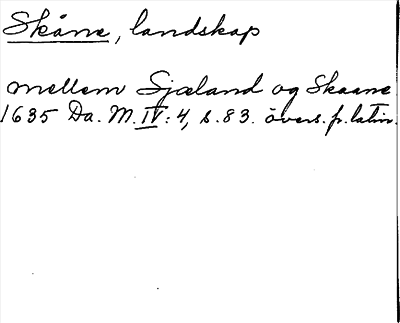 Skåne, landskap
mellem Sjæland og Skaane
1635 Da. M. IV: 4, s. 83. övers. fr. latin.